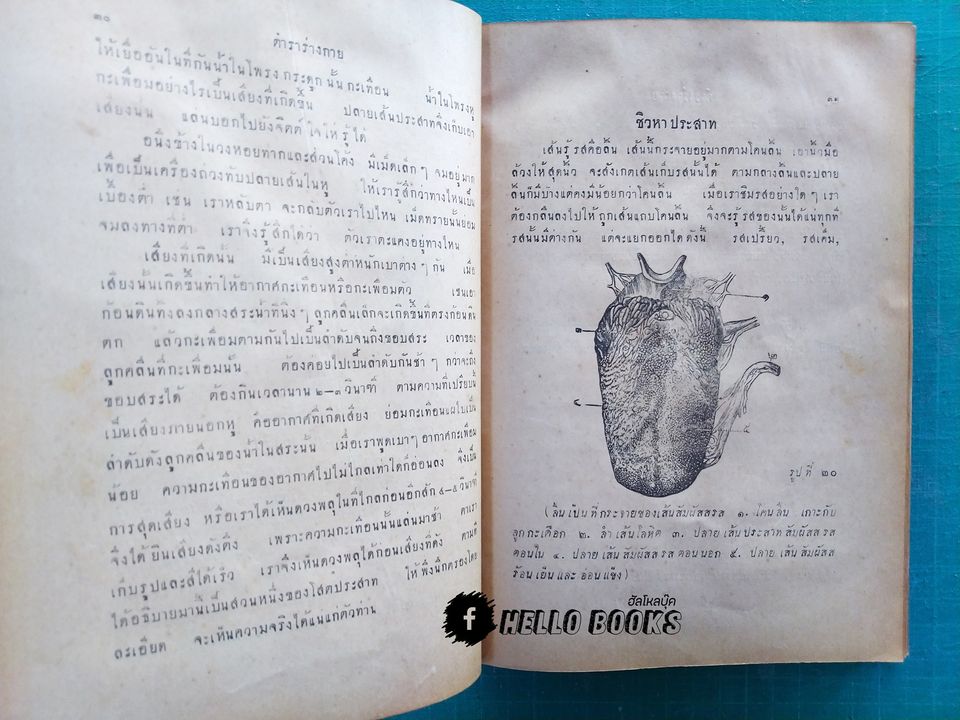 ๓๐
ตำราร่างกาย
ให้เยื่ออันในที่กันน้ำในโพรงกระดูกนั้นกะเทือน น้ำในโพรงหู
กะเพื่อมอย่างไรเป็นเสียงที่เกิดขึ้น ปลายเส้นประสาทจึงเก็บเอา
เสียงนั้น แล่นบอกไปยังจิตต์ใจให้รู้ได้
อนึ่งข้างในวงหอยทากและส่วนโค้ง มีเม็ดเล็กๆ จมอยู่มาก
เพื่อเป็นเครื่องถ่วงทับปลายเส้นในหู ให้เรารู้สึกว่าทางไหนเป็น
เบื้องต่ำ เช่น เราหลับตา จะกลับตัวเราไปไหน เม็ดทรายนั้นย่อม
จมลงทางที่ต่ำ เราจึงรู้สึกได้ว่า ตัวเราตะแคงอยู่ทางไหน
เสียงที่เกิดนั้น มีเป็นเสียงสูงต่ำหนักเบาต่างๆ กัน เมื่อ
เสียงนั้นเกิดขึ้นทำให้อากาศกะเทือนหรือกะเพื่อมตัว เช่นเอา
ก้อนดินทิ้งลงกลางสระน้ำที่นิ่งๆ ลูกคลื่นเล็กจะเกิดขึ้นที่ตรงก้อนดิน
ตก แล้วกะเพื่อมตามกันไปเป็นลำดับจนถึงขอบสระ เวลาของ
ลูกคลื่นที่กะเพื่อมนั้น ต้องค่อยไปเป็นลำดับกันช้าๆ กว่าจะถึง
ขอบสระได้ ต้องกินเวลานาน ๒–๓ วินาฑี ตามความที่เปรียบนี้
เป็นเสียงภายนอกหู คืออากาศที่เกิดเสียง ย่อมกะเทือนแผ่ไปเป็น
ลำดับดังลูกคลื่นของน้ำในสระนั้น เมื่อเราพูดเบาๆ อากาศกะเพื่อม
น้อย ความกะเทือนของอากาศไปไม่ไกลเท่าใดก็อ่อนลง จึงเป็น
การสุดเสียง หรือเราได้เห็นดวงพลุในที่ไกลก่อนอีกสัก ๔–๕ วินาฑี
จึงได้ยินเสียงดังตึง เพราะความกะเทือนนั้นแล่นมาช้า ตาเรา
เก็บรูปและสีได้เร็ว เราจึงเห็นดวงพลุได้ก่อนเสียงที่ดัง ตามที่
ได้อธิบายมานี้เป็นส่วนหนึ่งของโสตประสาท ให้พึงนึกตรองโดย
ละเอียด จะเห็นความจริงได้แน่แก่ตัวท่าน
๓๑
ชิวหาประสาท
เส้นรู้รสคือลิ้น เส้นนี้กระจายอยู่มากตามโคนลิ้น เอานิ้วมือ
ล้วงให้สุดนิ้ว จะสังเกตเส้นเก็บรสนั้นได้ ตามกลางลิ้นและปลาย
ลิ้นก็มีบ้างแต่คงมีน้อยกว่าโคนลิ้น เมื่อเราชิมรสอย่างใดๆ เรา
ต้องกลืนลงไปให้ถูกเส้นแถบโคนลิ้น จึงจะรู้รสของนั้นได้แน่ทุกที
รสนั้นมีต่างกัน แต่จะแยกออกได้ดังนี้ รสเปรี้ยว, รสเค็ม,
๑
๓
๒
๔
๕
รูปที่ ๒๐
(ลิ้นเป็นที่กระจายของเส้นสัมผัสสรส ๑. โคนลิ้น เกาะกับ
ลูกกะเดือก ๒. ลำเส้นโลหิต ๓. ปลายเส้นประสาทสัมผัสสรส
ตอนใน ๔. ปลายเส้นสัมผัสสรสตอนนอก ๕. ปลายเส้นสัมผัสส
ร้อนเย็นและอ่อนแข็ง)
ฮัลโหลบุ๊ค
f HELLO BOOKS